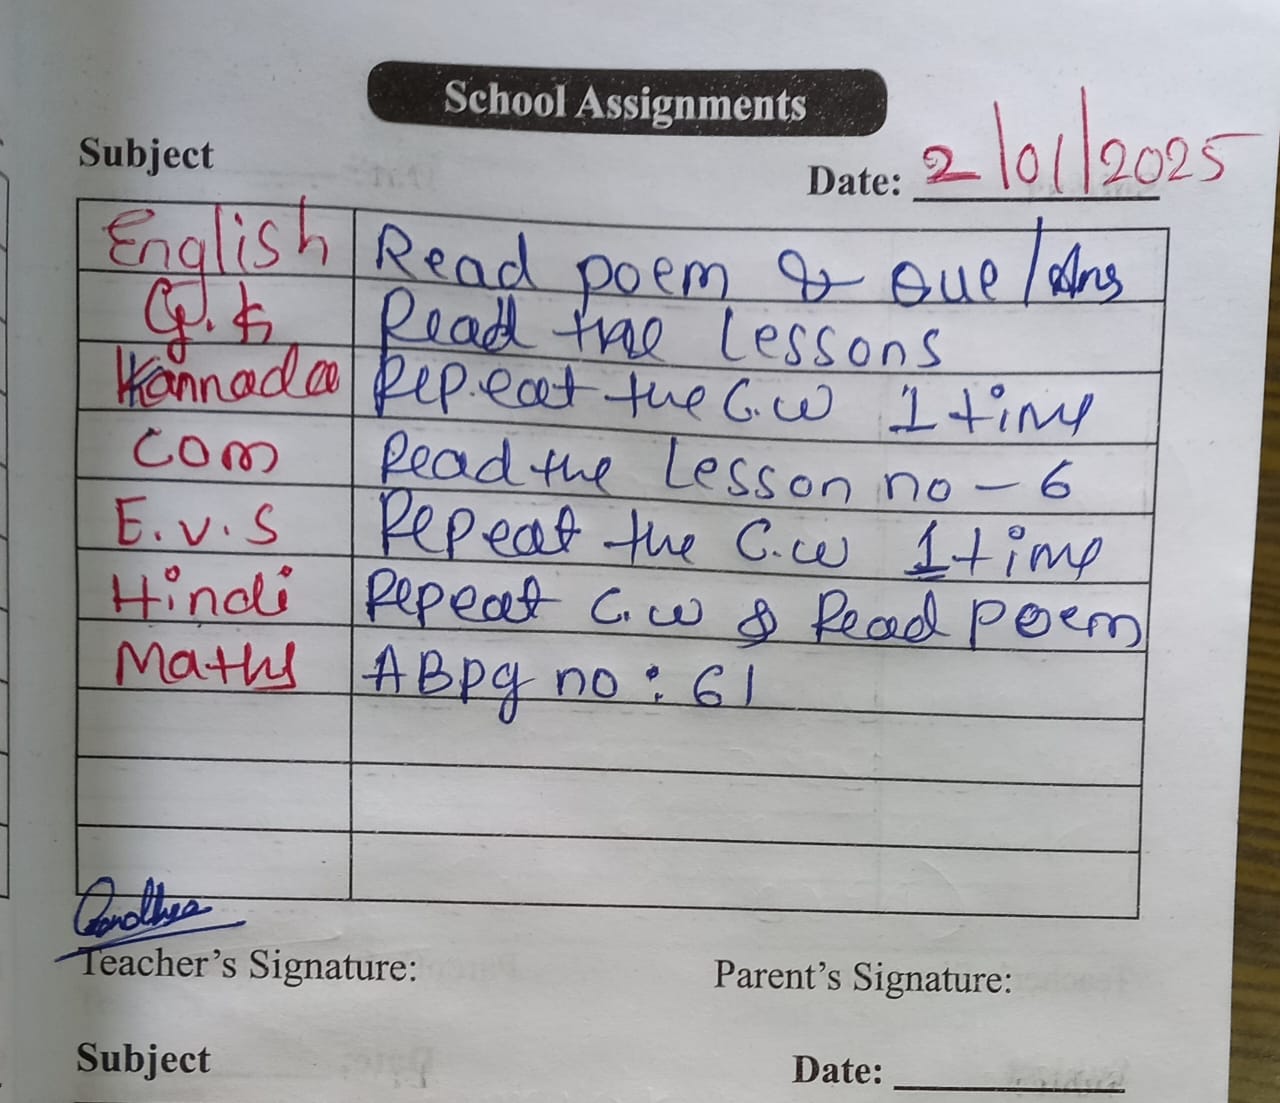 School Assignments
Subject
Date: 2/01/2025
English Read poem & Que/Ans
G.k Read the Lessons
Kannada Repeat the C.w 1 time
Com Read the Lesson no - 6
E.v.s Repeat the C.w 1 time
Hindi Repeat C.w & Read poem
Maths ABpg no : 61
Teacher's Signature:
Parent's Signature:
Subject
Date: